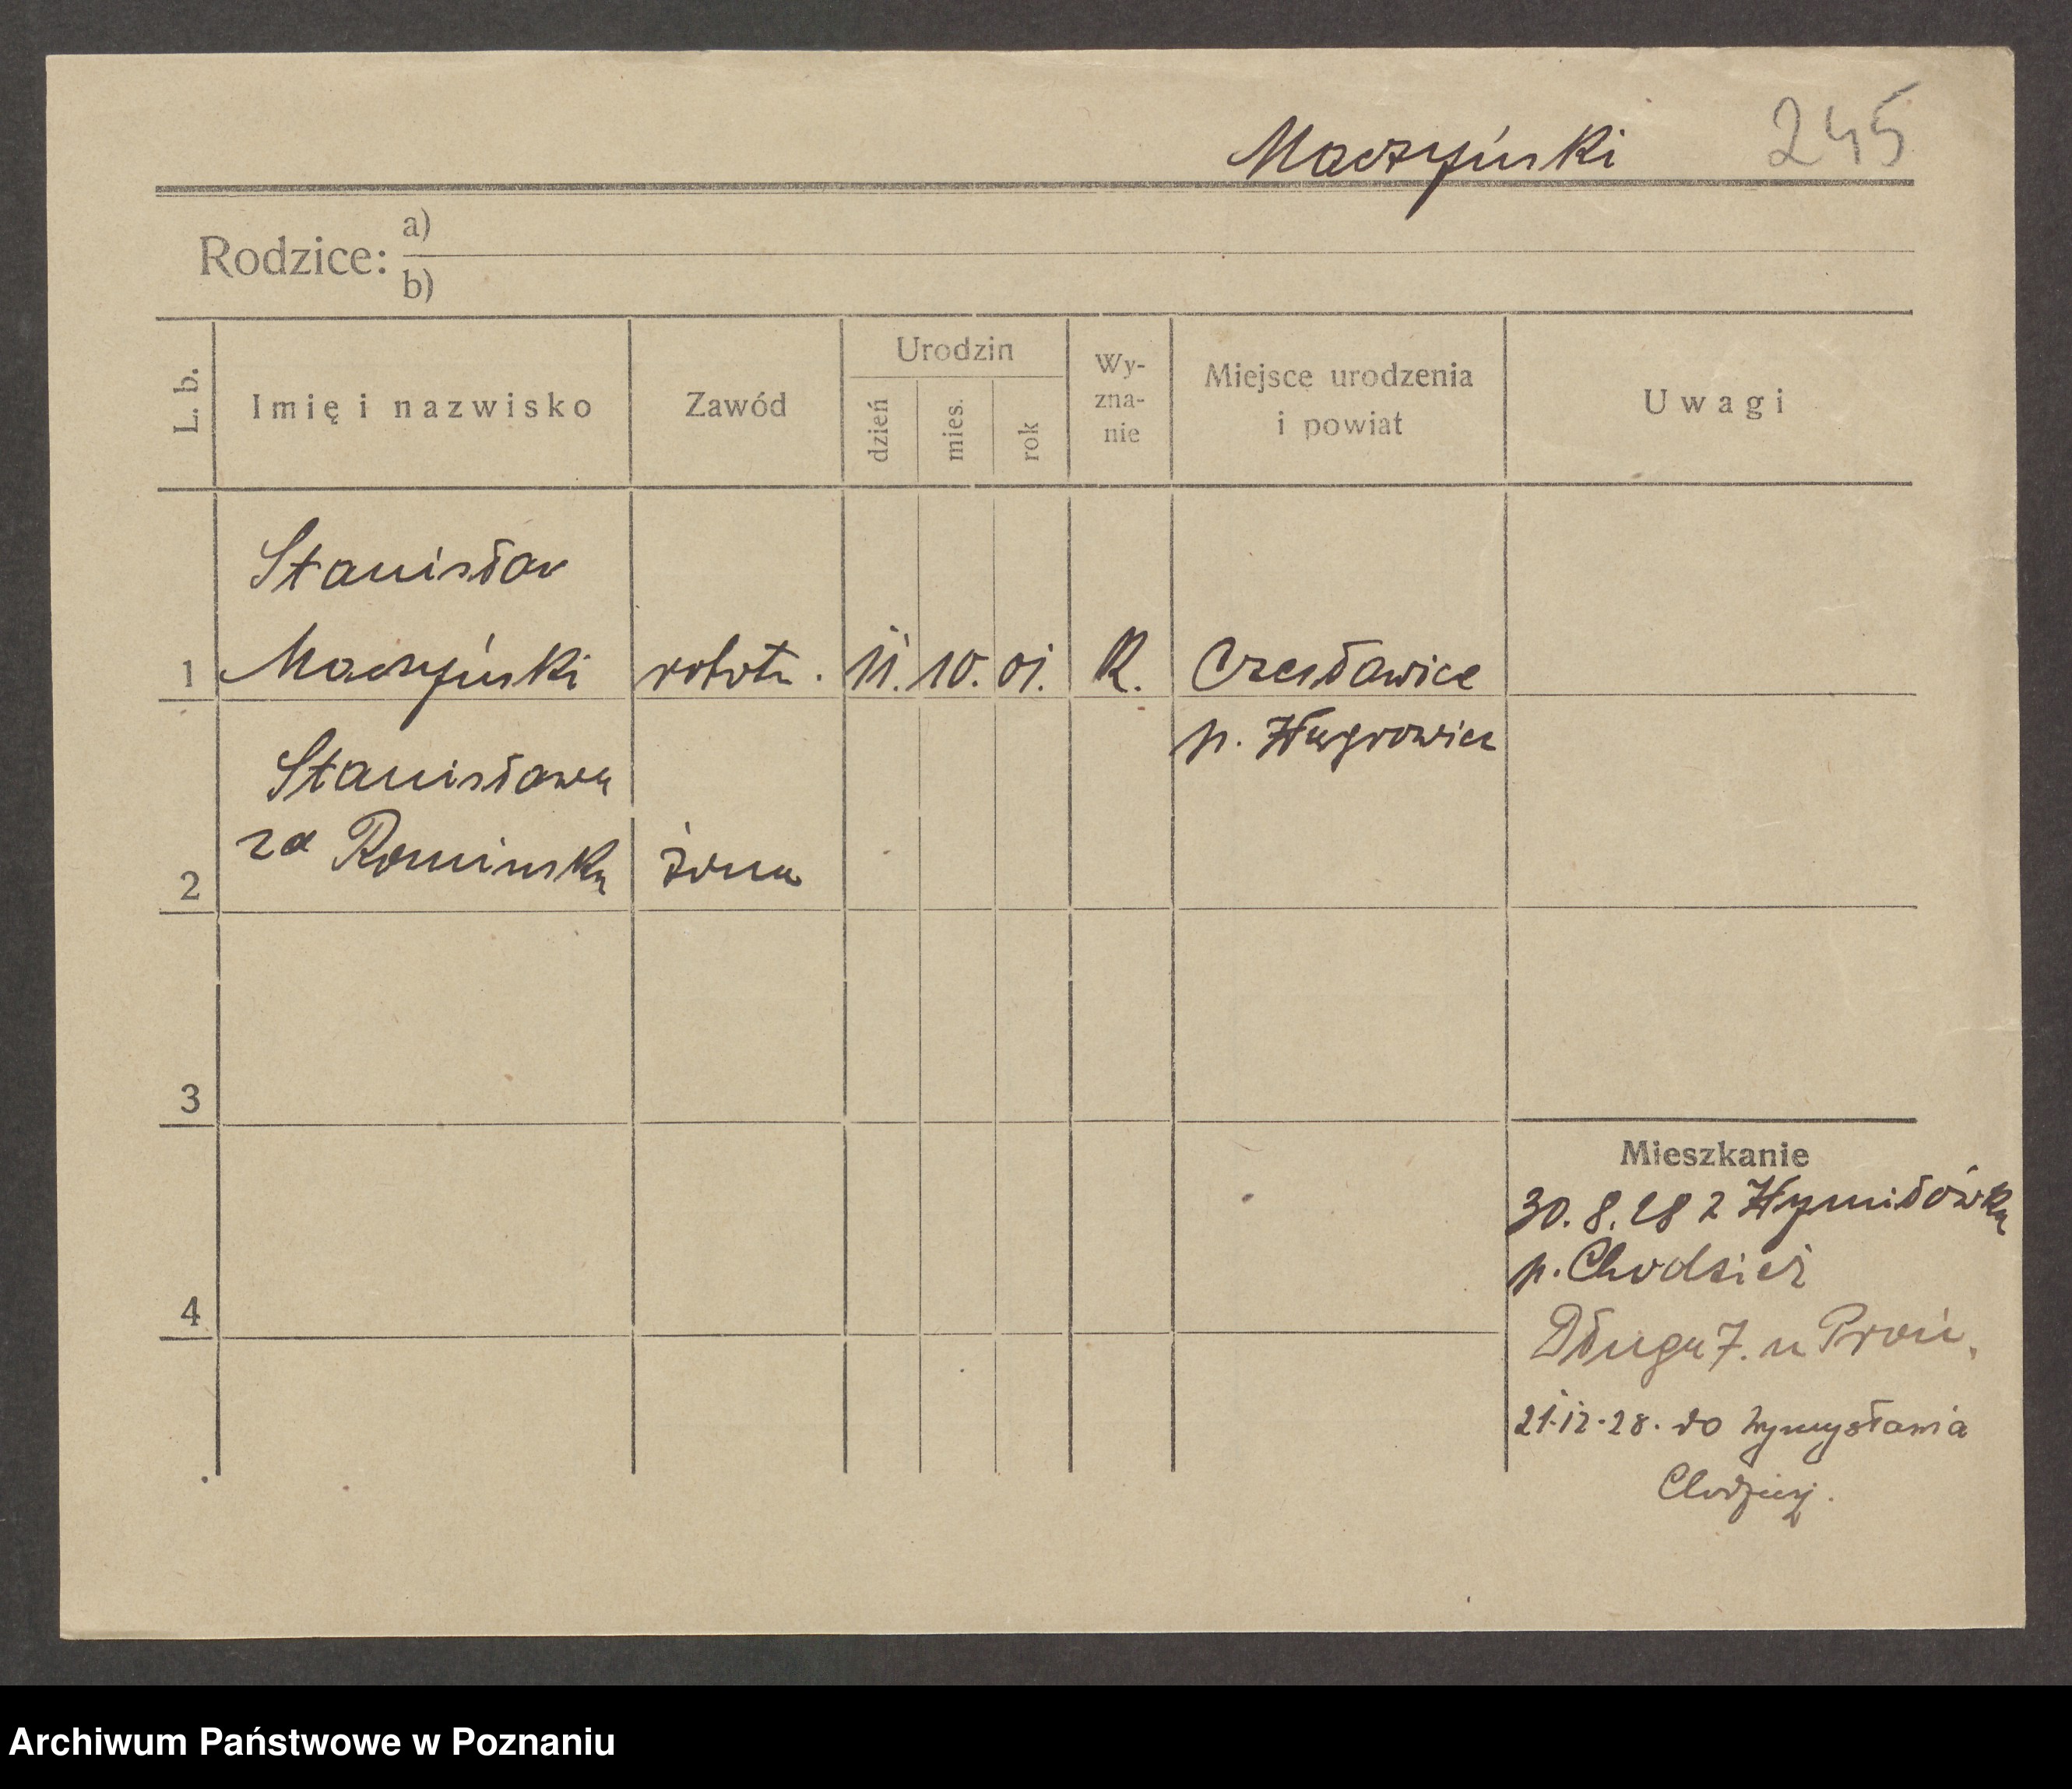 Maczyński 245
Rodzice: a)
b)
L. b.
Imię i nazwisko
Zawód
Urodzin
dzień
mies.
rok
Wy-
zna-
nie
Miejsce urodzenia
i powiat
Uwagi
Stanisław
1 Maczyński robotn. 11. 10. 01. R. Czesławice
p. Wągrowiec
Stanisława
za Romińską
2 żona
3
4
Mieszkanie
30. 8. 28 z
p. Chodzież
Długa 7. u
21.12.28. do Wymysławia
Chodzież.
Archiwum Państwowe w Poznaniu